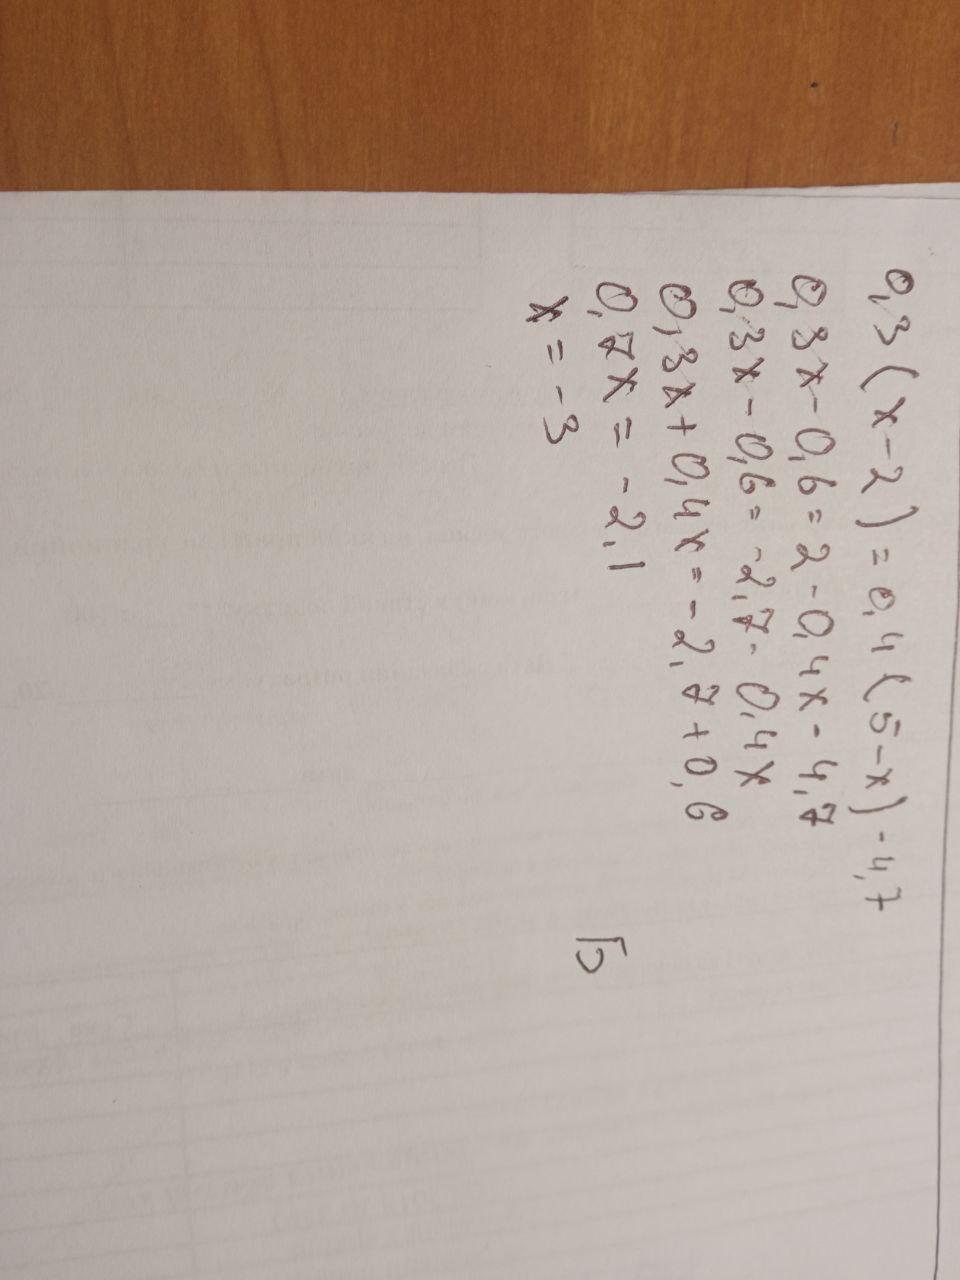 0,3(x-2)=0,4(5-x)-4,7
0,3x-0,6=2-0,4x-4,7
0,3x-0,6=-2,7-0,4x
0,3x+0,4x=-2,7+0,6
0,7x=-2,1
x=-3
Б